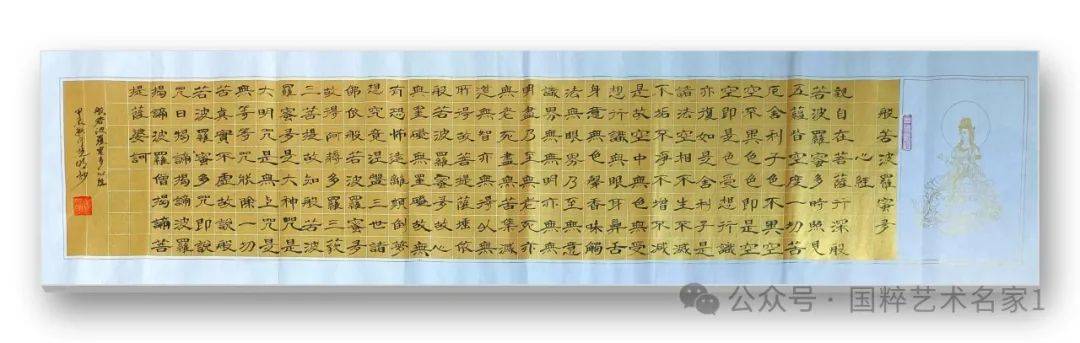 般若波羅蜜多
心經
觀自在菩薩行深般
若波羅蜜多時照見
五蘊皆空度一切苦
厄舍利子色不異空
空不異色色即是空
空即是色受想行識
亦復如是舍利子是
諸法空相不生不滅
不垢不淨不增不減
是故空中無色無受
想行識無眼耳鼻舌
身意無色聲香味觸
法無眼界乃至無意
識界無無明亦無無
明盡乃至無老死亦
無老死盡無苦集滅
道無智亦無得以無
所得故菩提薩埵依
般若波羅蜜多故心
無罣礙無罣礙故無
有恐怖遠離顛倒夢
想究竟涅盤三世諸
佛依般若波羅蜜多
故得阿耨多羅三藐
三菩提故知般若波
羅蜜多是大神咒是
大明咒是無上咒是
無等等咒能除一切
苦真實不虛故說般
若波羅蜜多咒即說
咒曰揭諦揭諦波羅
揭諦波羅僧揭諦菩
提薩婆訶
般若波羅蜜多心經
甲辰
公众号 · 国粹艺术名家1